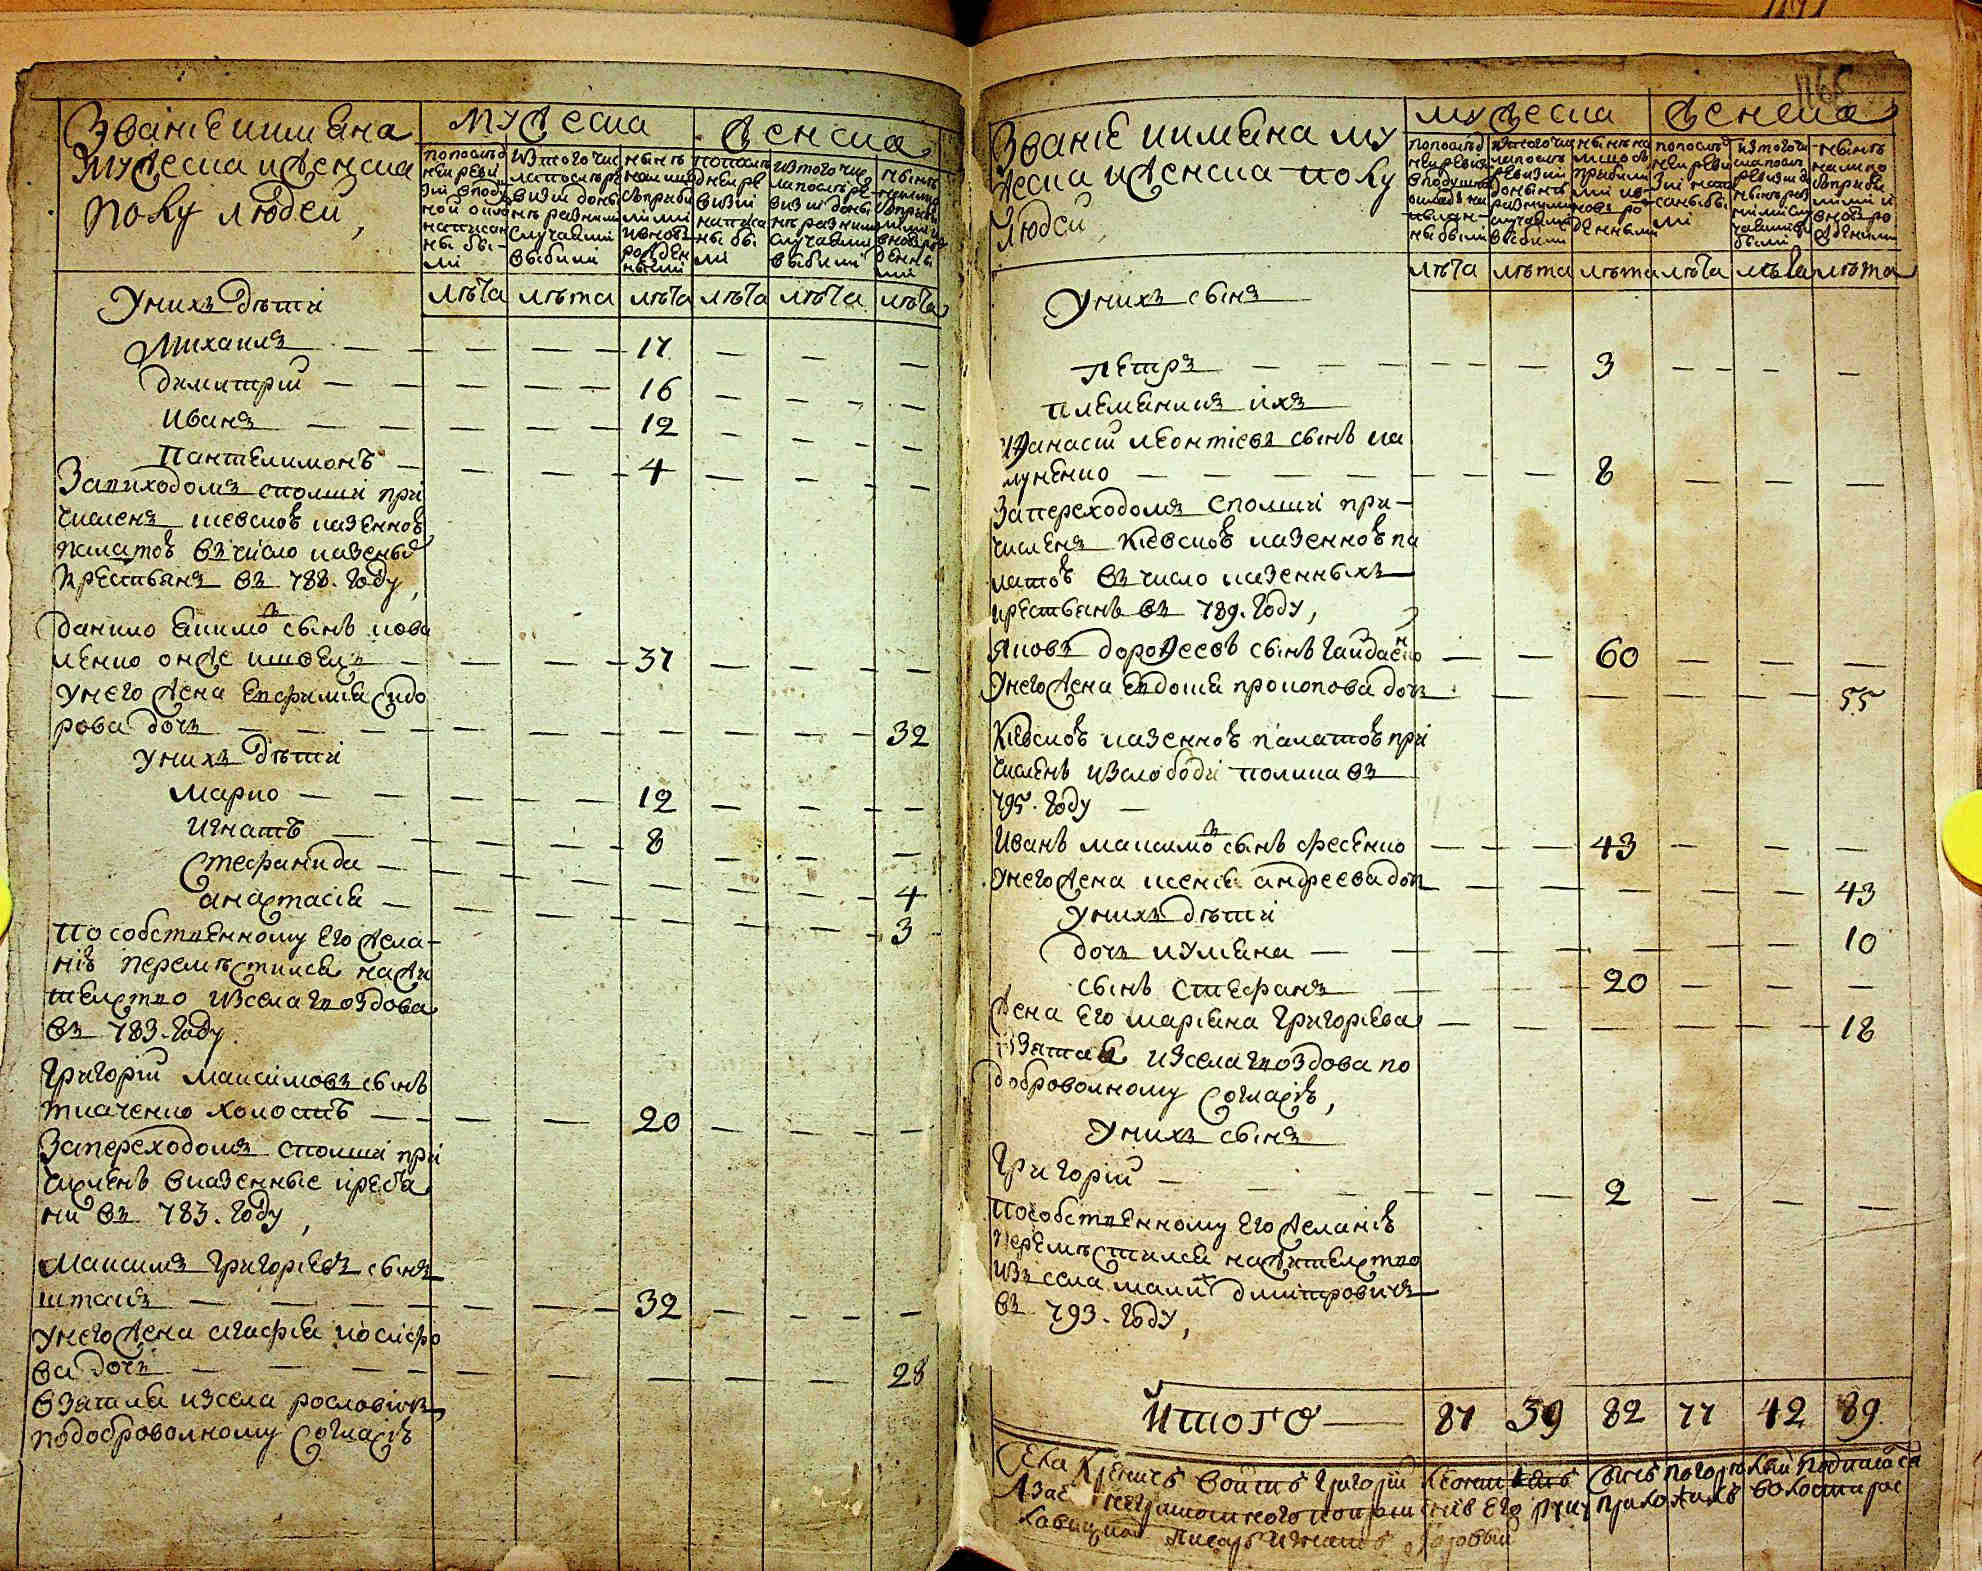 Званіе иимена
Мужеска иженска
полу людей,
Мужеска
Женска
попослѣд
ней реви
зіи вподуш
ной окладъ
написан
ны бы
ли
изтого чис
ла послѣ ре
визіи донынѣ
разными
случаями
выбили
нынѣ
налицо
съприбы
лими
ивновь
рожден
ными
попослѣ
дней ре
визіи
написа
ны бы
ли
изтого чис
ла послѣ ре
визіи доны
нѣ разными
случаями
выбили
нынѣ
налицо
съприбы
лими и
вновь ро
жденны
ми
лѣта лѣта лѣта лѣта лѣта лѣта
Унихъ дѣти
Михаилъ — — — — 17 — — —
димитрій — — — — 16 — — —
Иванъ — — — — 12 — — —
Пантелимонъ — — — — 4 — — —
Запиходомъ сполши при
численъ киевской казенной
палатой въчисло казеный
крестьянъ въ 788. году,
данило Якимовъ сынъ кова
ленко онже и швецъ — — — 37 — — —
унего жена Евфимія Сидо
рова дочь — — — — — — — 32
унихъ дѣти
марко — — — — 12 — — —
игнатъ — — — — 8 — — —
Стефанида — — — — — — 4
анастасія — — — — — — 3
по собственному его жела
нію перемѣстился нажи
телство изсела гвоздова
въ 783. году
григорій максимовъ сынъ
ткаченко холостъ — — — 20 — — —
Запереходомъ сполши при
численъ вказенные крестья
ни въ 783. году,
максимъ григорьевъ сынъ
шпакъ — — — — 32 — — —
унего жена агафія иосифо
ва дочь — — — — — — — 28
взятая изсела рославичь
подоброволному согласію
Званіе иимена му
жеска иженска полу
людей,
мужеска
женска
попослѣд
ней ревизіи
вподушной
окладъ на
писан
ны были
изтого чис
ла послѣ
ревизіи
донынѣ
разними
случаями
выбили
нынѣ на
лицо съ
прибыли
ми ив
новь ро
жденными
попослѣд
ней реви
зіи напи
саны бы
ли
изтого чи
сла послѣ
ревизіи до
нынѣ раз
ними слу
чаями вы
были
нынѣ
налицо
съприби
лими и
вновь ро
жденими
лѣта лѣта лѣта лѣта лѣта лѣта
Унихъ сынъ
Петръ — — — — 3 — — —
племянникъ ихъ
Афанасій леонтіевъ сынъ ка
луненко — — — — 8 — — —
Запереходомъ сполши при-
численъ Кіевской казенной па
латой въчисло казенныхъ
крестьянъ въ 789. году,
Яковъ дорофеевъ сынъ гайдаенко — — 60 — — —
Унего жена Евдокія прокопова дочь — — — — — 55
Кіевской казенной палатой при
численъ изслободи полика въ
795. году —
Иванъ максимовъ сынъ фесенко — — — 43 — — —
Унего жена ксенія андреева дочь — — — — — 43
Унихъ дѣти
дочь иулияна — — — — — — 10
сынъ Стефанъ — — — 20 — — —
Жена его маріяна григоріева — — — — — 18
взятая изсела гвоздова по
добровольному согласію,
Унихъ сынъ
Григорій — — — — 2 — — —
пособственному его желанію
перемѣстился нажителство
изъ села малихъ дмитровичь
въ 793. году,
Итого — 87 39 82 77 42 89
Села Крѣничъ войтъ григорій Сынъ подписался
а за его неграмотного попрошенію его руку приложилъ волости рос
лавицкой писарь Игнатъ